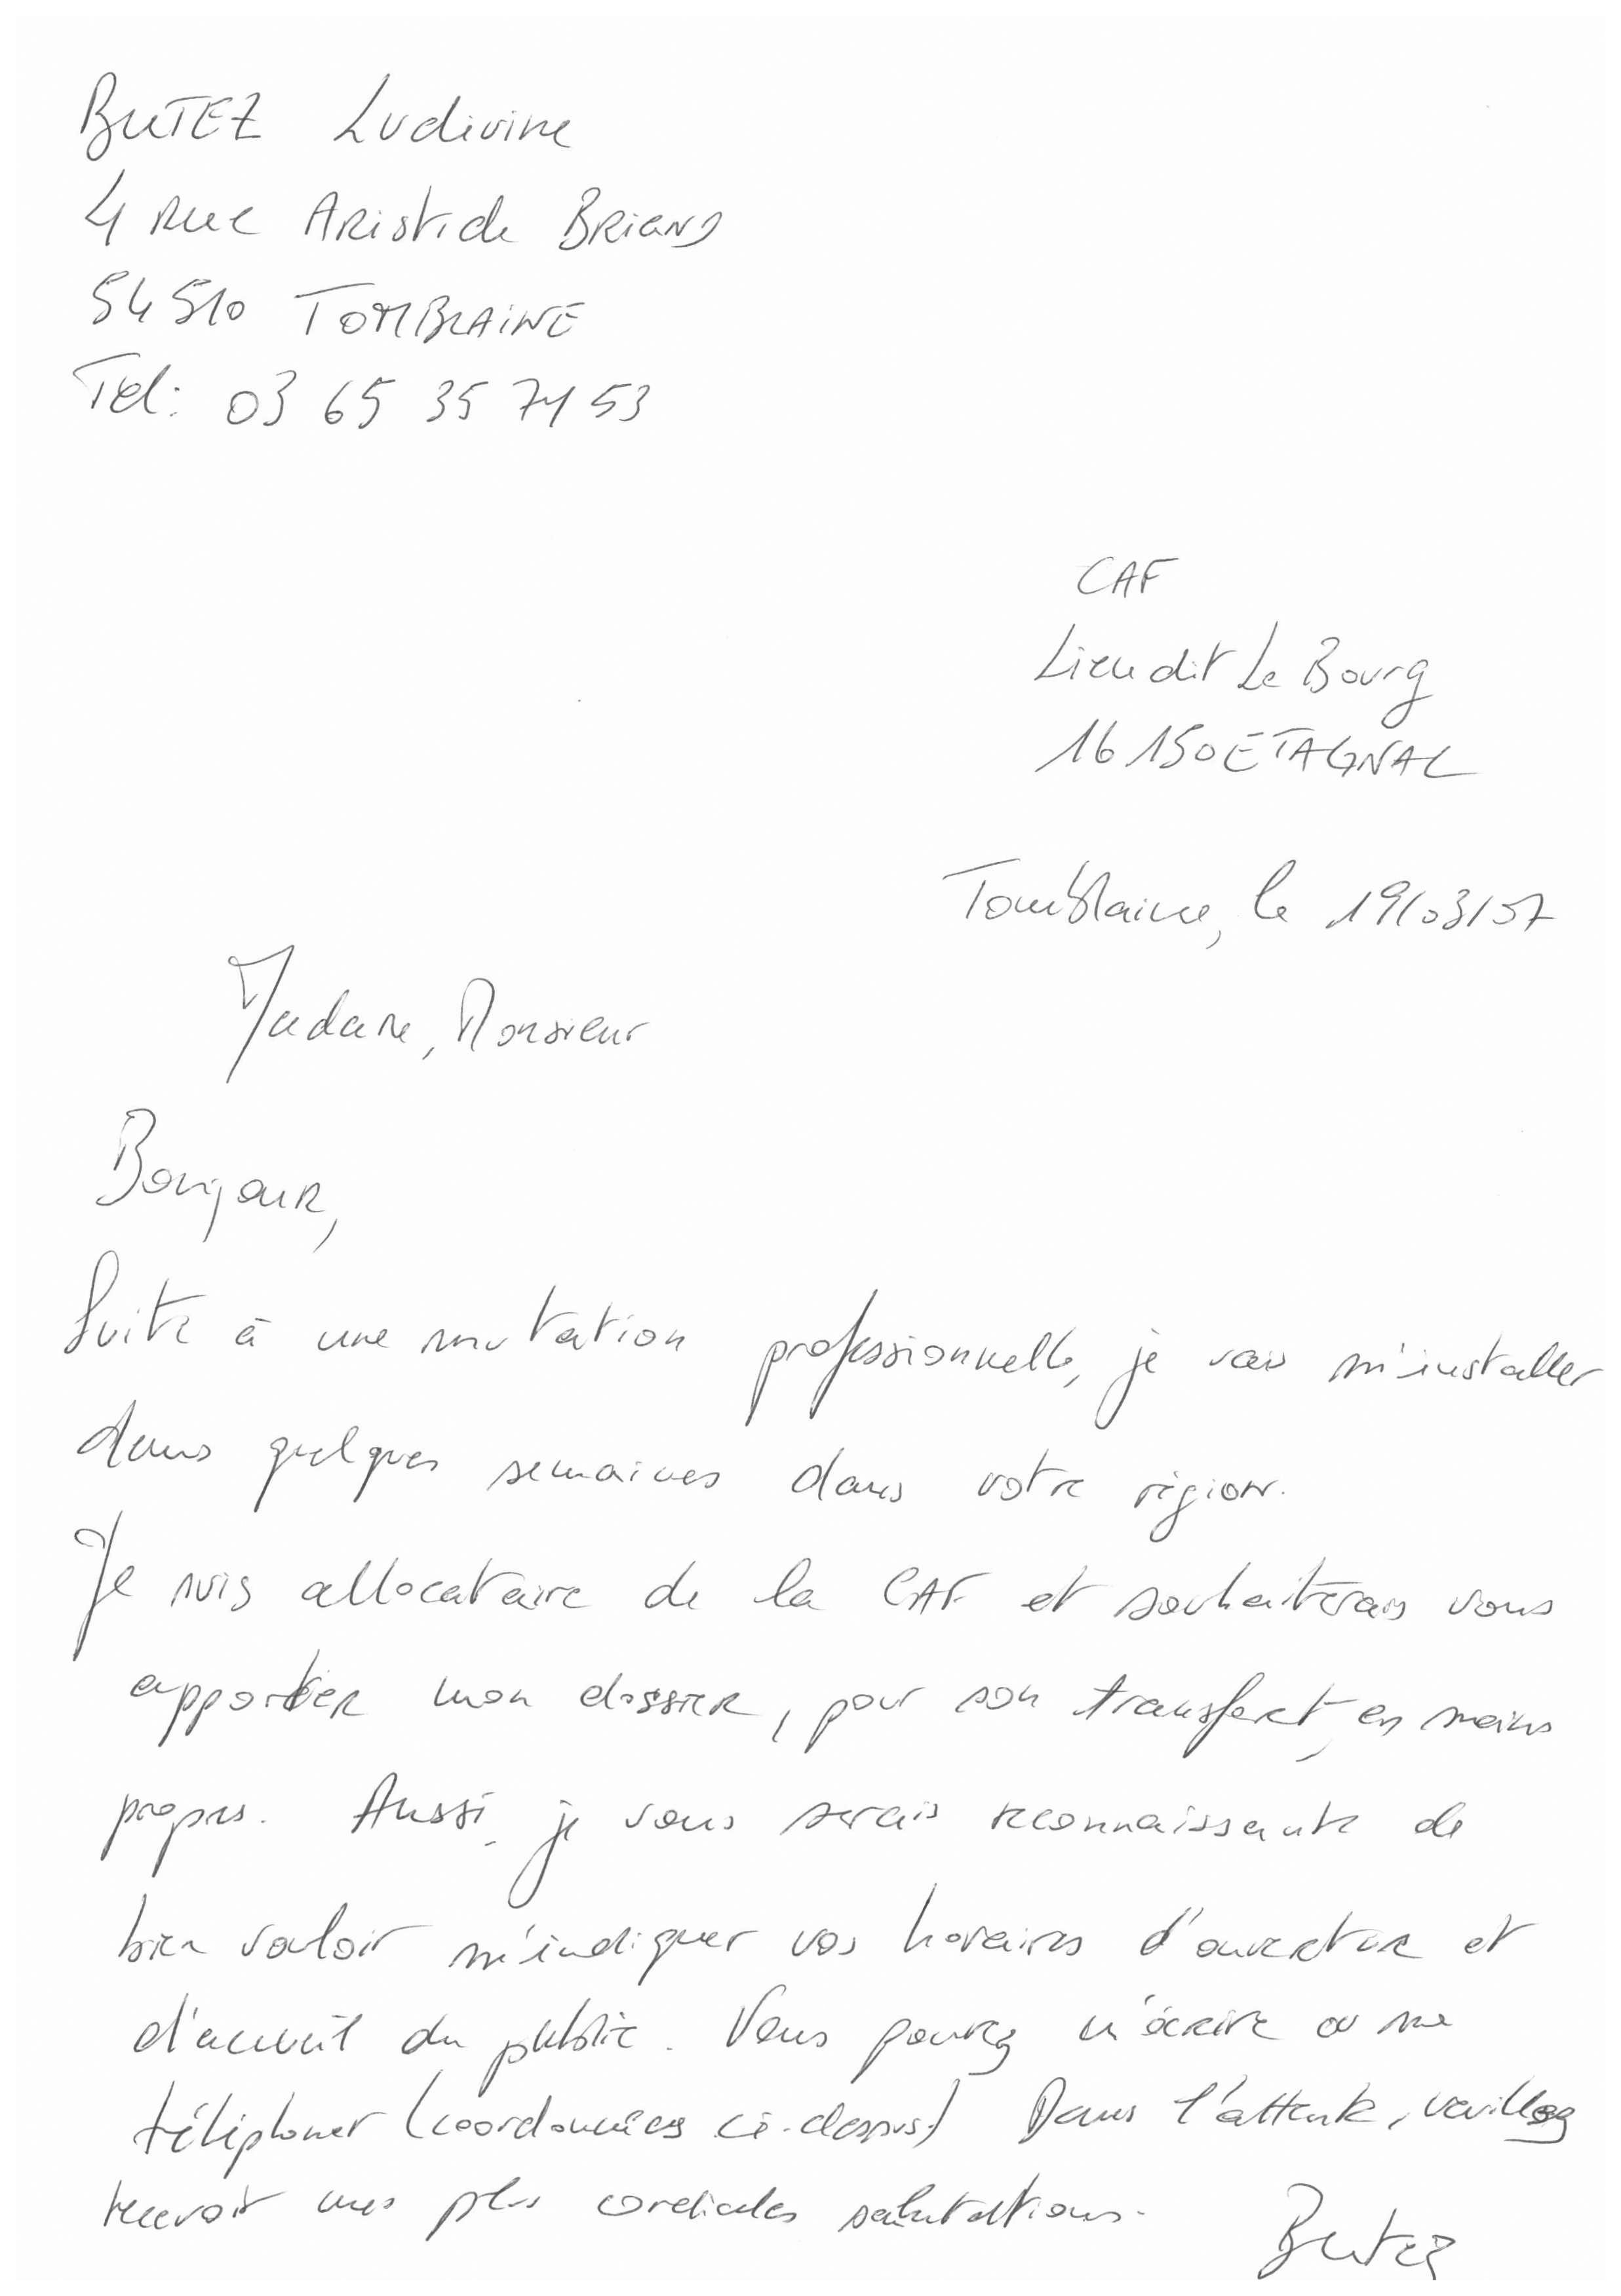 BUTEZ Ludivine
4 Rue Aristide BRIAND
54510 TOMBLAINE
Tél: 03 65 35 71 53
CAF
Lieu dit Le Bourg
16150 ETAGNAC
Tomblaine, le 19/03/07
Madame, Monsieur
Bonjour,
Suite à une mutation professionnelle, je vais m'installer
dans quelques semaines dans votre région.
Je suis allocataire de la CAF et souhaiterais vous
apporter mon dossier, pour son transfert, en mains
propres. Aussi, je vous serais reconnaissante de
bien vouloir m'indiquer vos horaires d'ouverture et
d'accueil du public. Vous pouvez m'écrire ou me
téléphoner (coordonnées ci-dessus) Dans l'attente, veuillez
recevoir mes plus cordiales salutations.
Butez